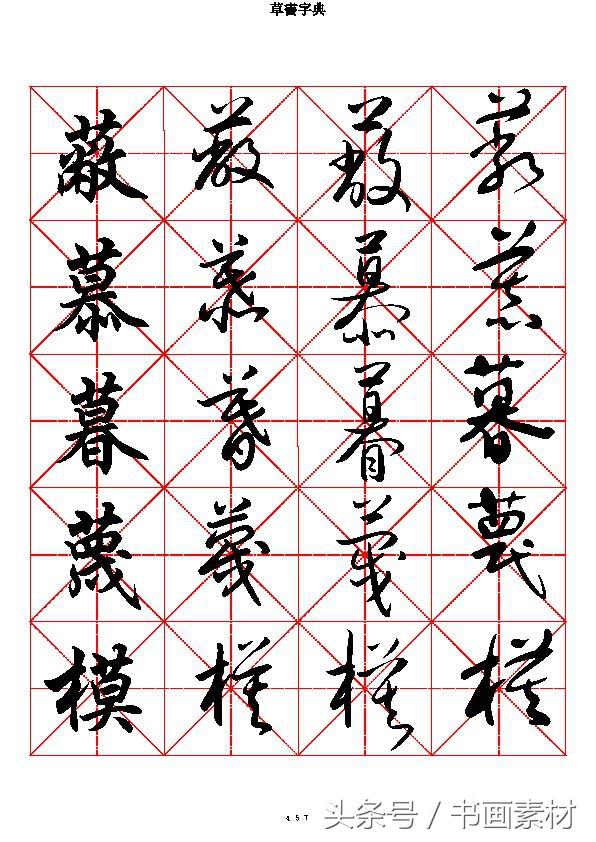 草書字典
蔽 蔽 蔽 蔽
慕 慕 慕 慕
暮 暮 暮 暮
蔑 蔑 蔑 蔑
模 模 模 模
457
头条号 / 书画素材